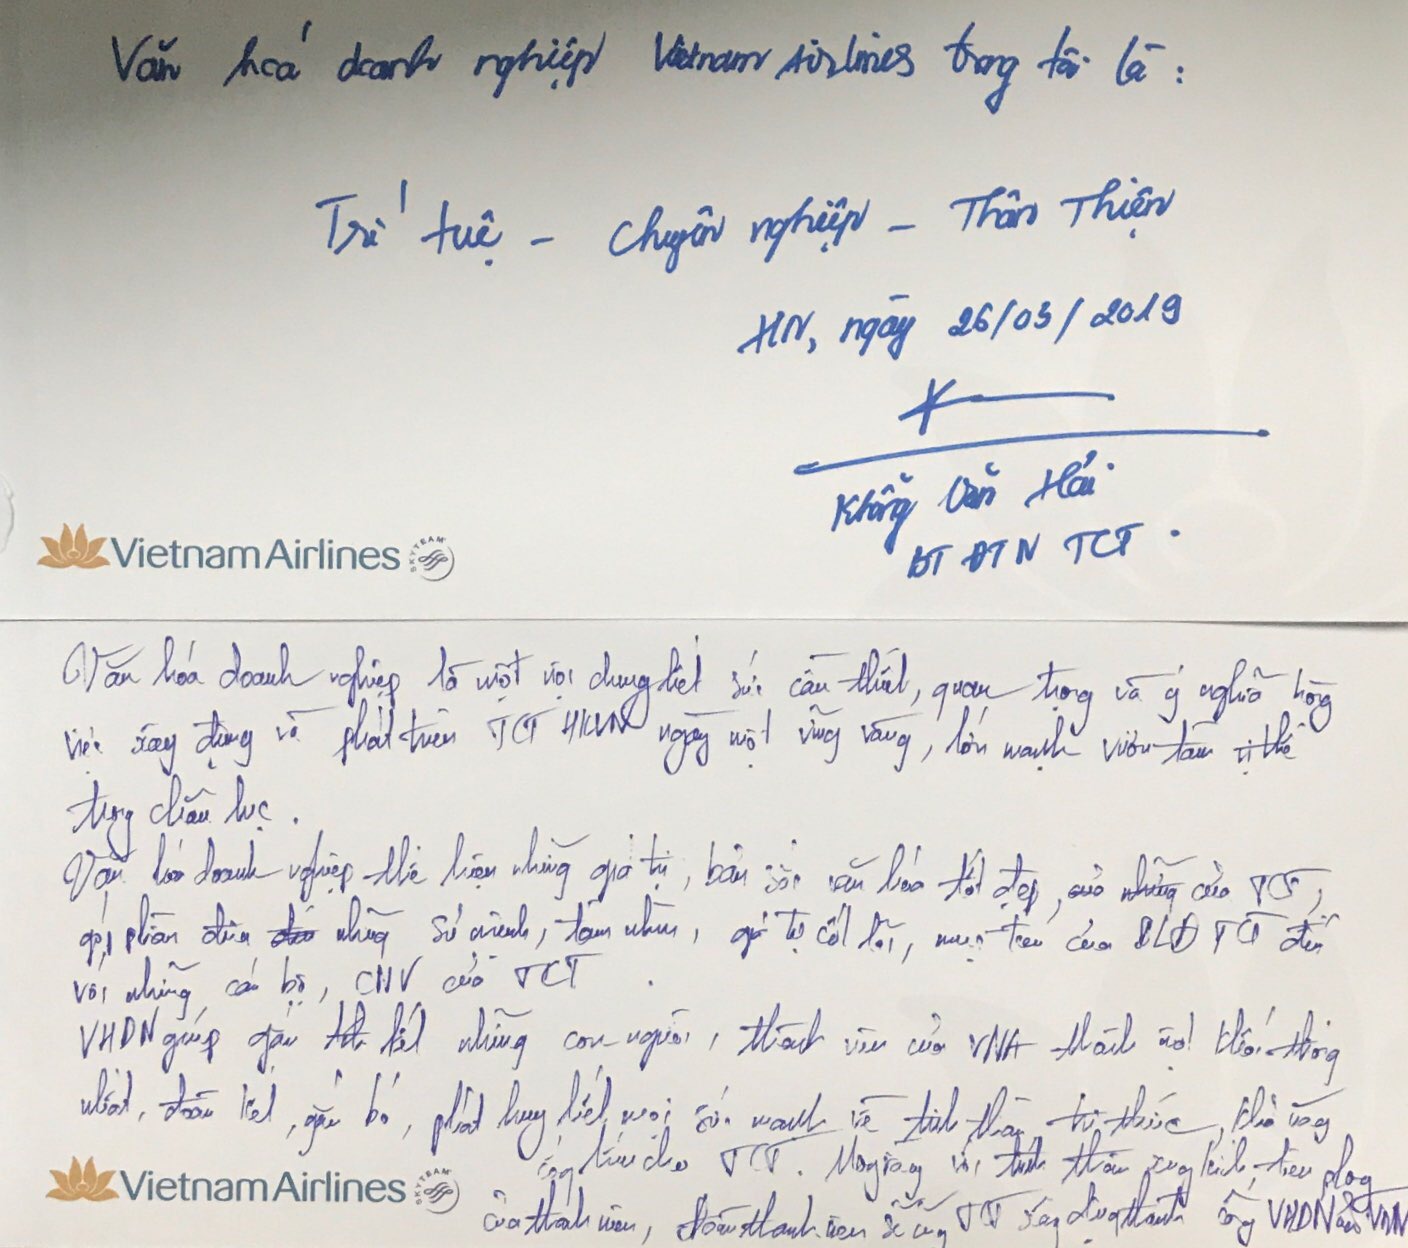 Văn hoá doanh nghiệp Vietnam Airlines trong tôi là :
Trí tuệ - Chuyên nghiệp - Thân Thiện
HN, ngày 26/03/2019
Khổng Văn Hải
BT ĐTN TCT .
Vietnam Airlines SKYTEAM
Văn hóa doanh nghiệp là một nội dung hết sức cần thiết, quan trọng và ý nghĩa trong
việc xây dựng và phát triển TCT HKVN ngày một vững vàng, lớn mạnh vươn tầm vị thế
trong châu lục .
Văn hóa doanh nghiệp thể hiện những giá trị, bản sắc văn hóa tốt đẹp, của TCT,
góp phần đưa những sứ mệnh, tầm nhìn, giá trị cốt lõi, mục tiêu của BLĐ TCT đến
với những cán bộ, CNV của TCT .
VHDN giúp gắn kết những con người, thành viên của VNA thành một khối thống
nhất, đoàn kết, gắn bó, phát huy hết mọi sức mạnh về tinh thần, trí thức, khả năng
cho TCT. với tinh thần xung kích, tiên phong
của thanh niên, Đoàn thanh niên sẽ cùng TCT xây dựng thành công VHDN
Vietnam Airlines SKYTEAM